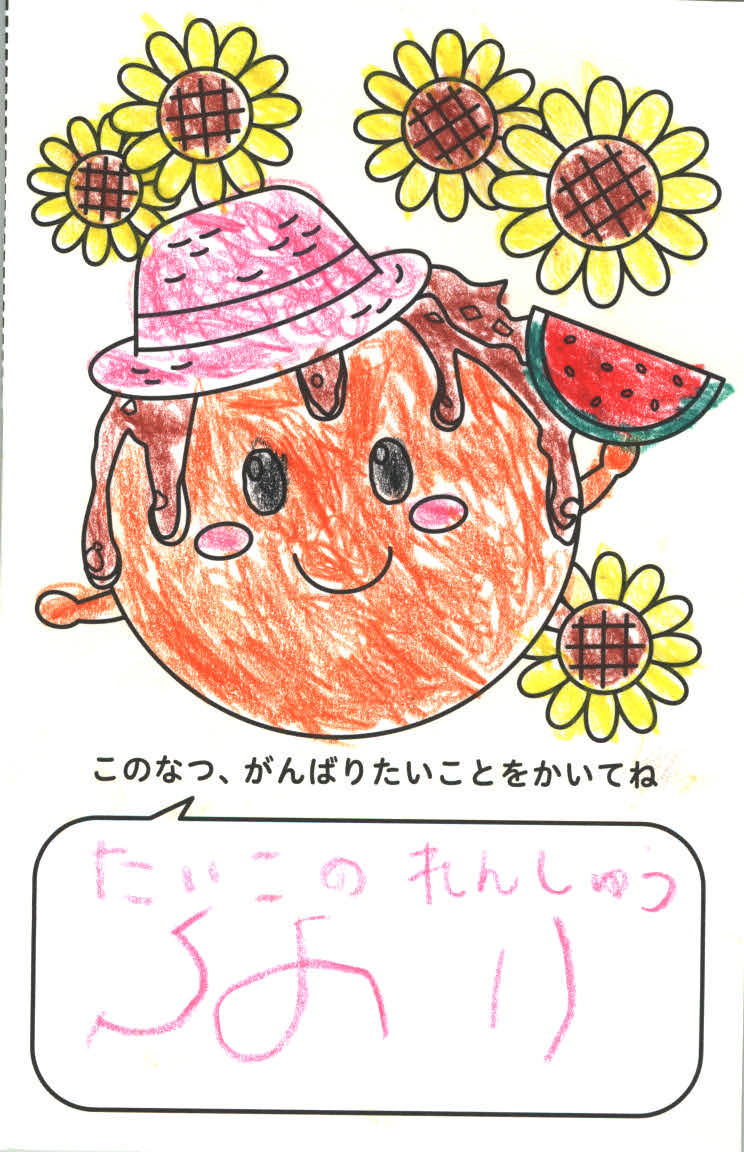 このなつ、がんばりたいことをかいてね
たいこの れんしゅつ
ひより